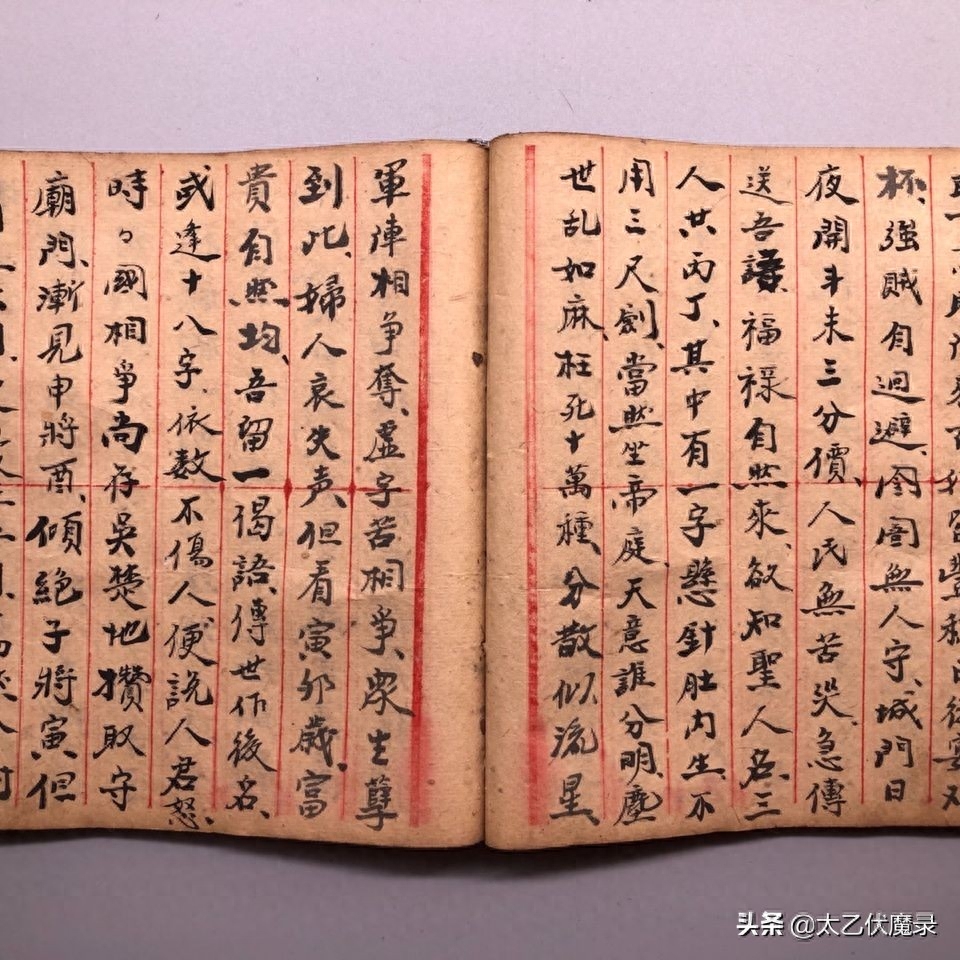 杯、強賊自迴避、囹圄無人守、城門日
夜開、斗米三分價、人民無苦哭、急傳
送吾謙、福祿自然來、欲知聖人名、三
人共丙丁、其中有一字懸針肚內生、不
用三尺劍、當然坐帝庭、天意誰分明、塵
世乱如麻、枉死十萬種、分散似流星、
軍陣相争奪、虛字苦相爭、眾生孽
到此、婦人哀失声、但看寅卯歲、富
貴自然均、吾留一偈語、傳世作後名、
或逢十八字、依数不傷人、便說人君怒、
時々國相爭、尚存吳楚地、攢取守
廟門、漸見申將酉、傾絕子將寅、但
头条 @太乙伏魔录